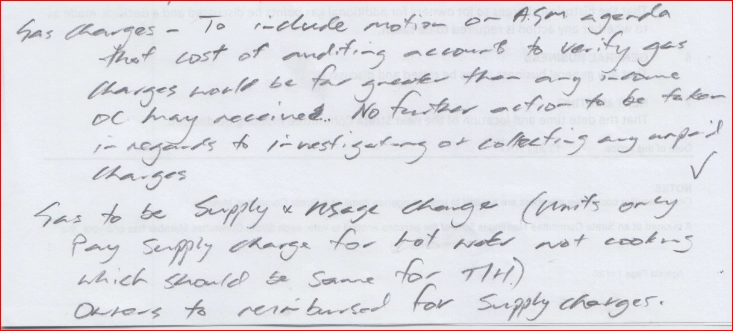 Gas charges - To include motion on AGM agenda
that cost of auditing accounts to verify gas
charges would be far greater than any income
OC may receive. No further action to be taken
in regards to investigating or collecting any unpaid
charges
Gas to be Supply & usage charge (Units only
pay supply charge for hot water not cooking
which should be same for T/H.)
Owners to reimbursed for supply charges.